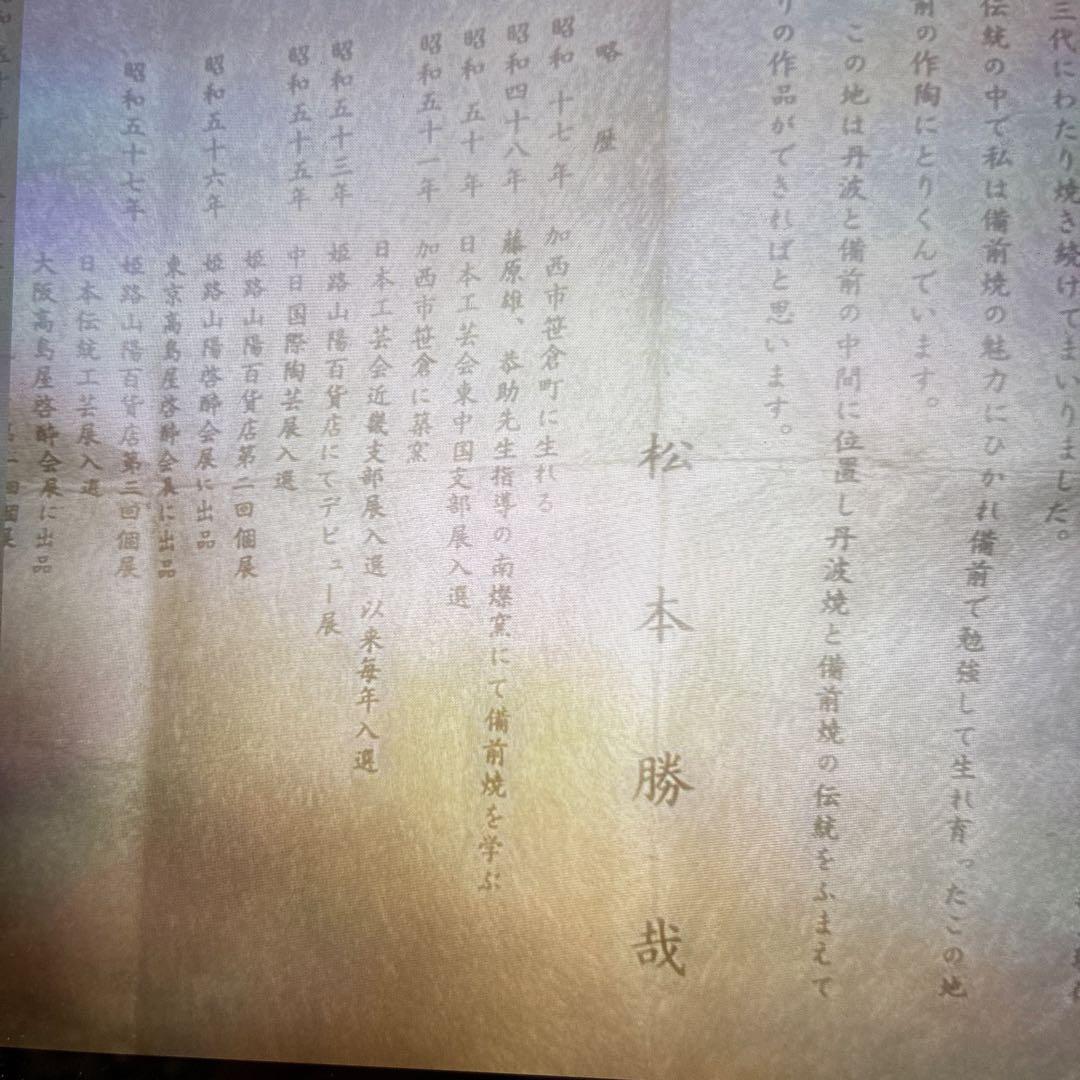 三代にわたり焼き続けてまいりました。
伝統の中で私は備前焼の魅力にひかれ備前で勉強して生れ育ったこの地
前の作陶にとりくんでいます。
この地は丹波と備前の中間に位置し丹波焼と備前焼の伝統をふまえて
りの作品ができればと思います。
松本勝哉
略歴
昭和十七年 加西市笹倉町に生れる
昭和四十八年 藤原雄、恭助先生指導の南燦窯にて備前焼を学ぶ
昭和五十年 日本工芸会東中国支部展入選
昭和五十一年 加西市笹倉に築窯
日本工芸会近畿支部展入選 以来毎年入選
昭和五十三年 姫路山陽百貨店にてデビュー展
昭和五十五年 中日国際陶芸展入選
姫路山陽百貨店第二回個展
昭和五十六年 姫路山陽啓酔会展に出品
東京高島屋啓酔会展に出品
昭和五十七年 姫路山陽百貨店第三回個展
日本伝統工芸展入選
大阪高島屋啓酔会展に出品